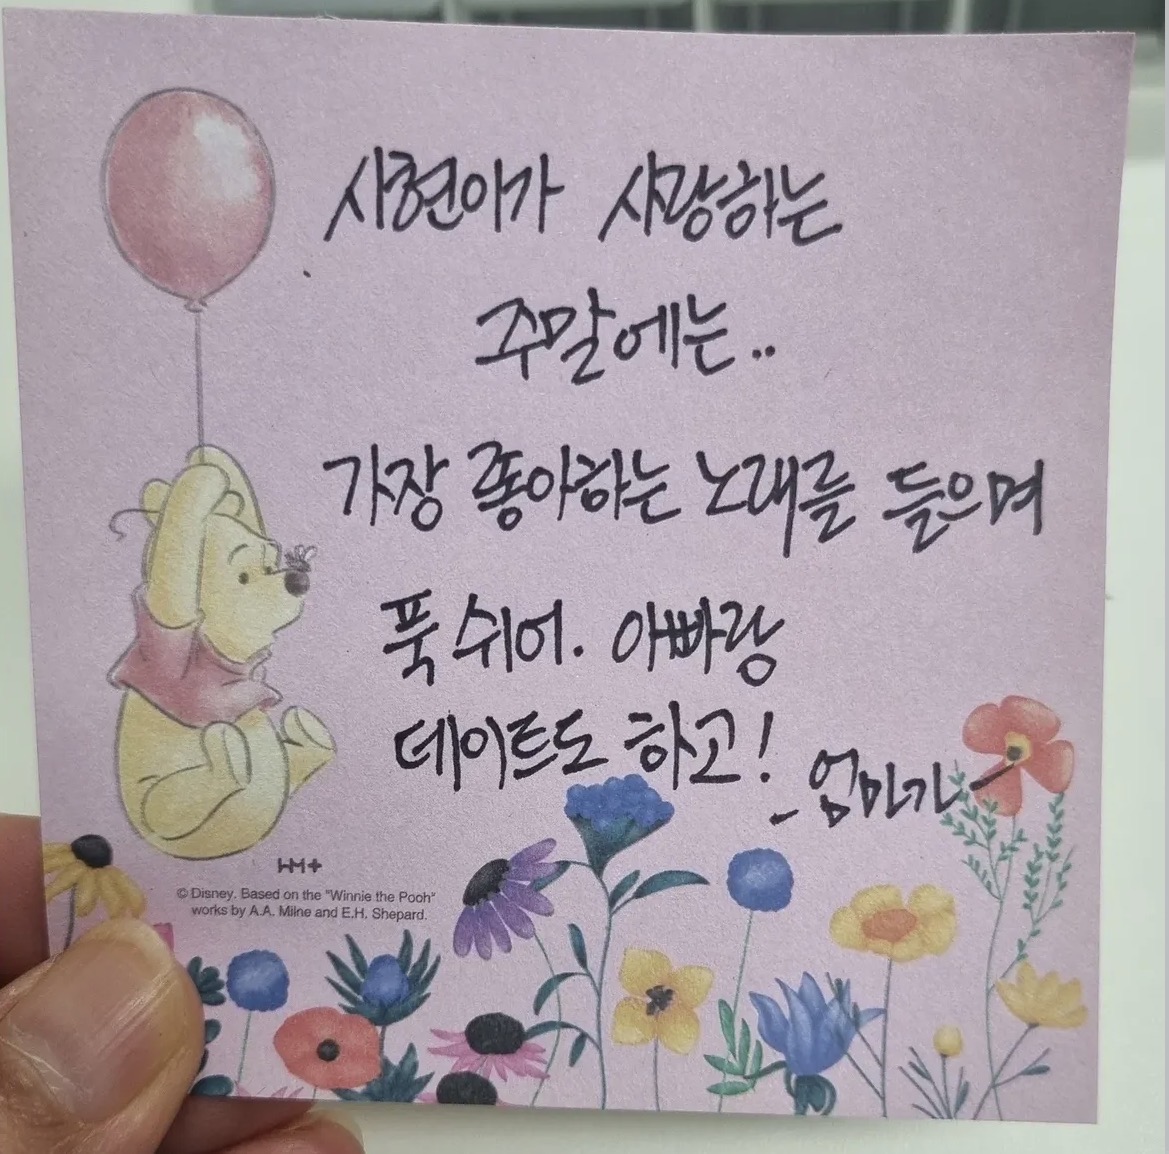 시현아가 사랑하는
주말에는..
가장 좋아하는 노래를 들으며
푹 쉬어. 아빠랑
데이트도 하고!
- 엄마가 -
HM+
© Disney. Based on the "Winnie the Pooh"
works by A.A. Milne and E.H. Shepard.